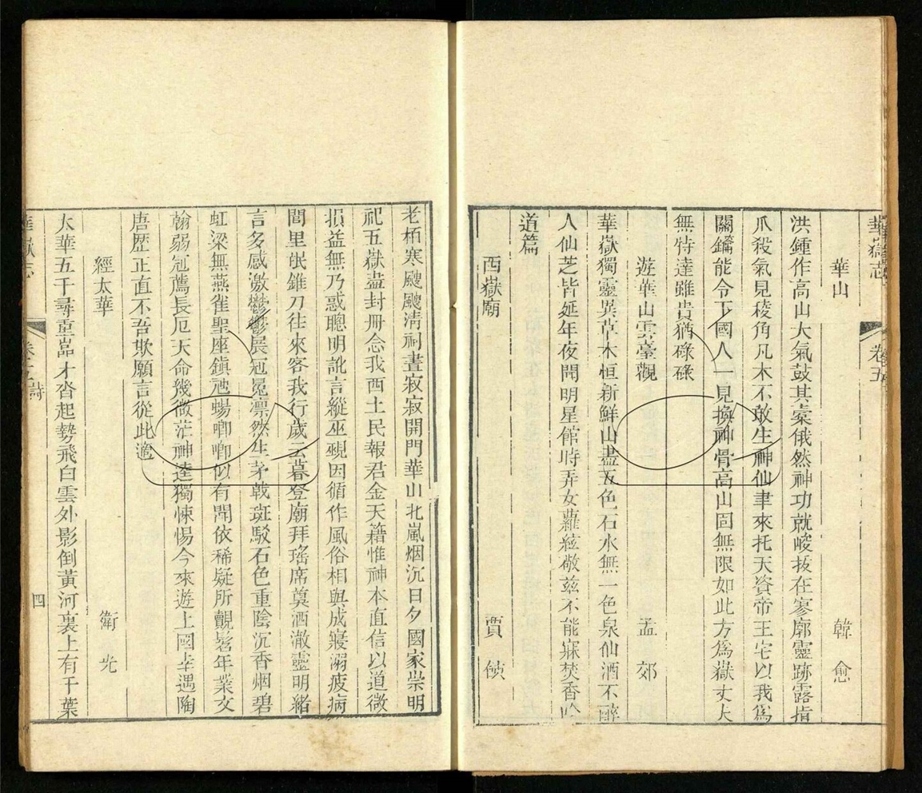 華嶽志
卷五
華山
韓愈
洪鍾作高山大氣鼓其橐俄然神功就峻拔在寥廓靈跡露指
爪殺氣見稜角凡木不敢生神仙聿來托天資帝王宅以我爲
關鑰能令下國人一見換神骨高山固無限如此方爲嶽丈夫
無特達雖貴猶碌碌
遊華山雲臺觀
孟郊
華嶽獨靈異草木恒新鮮山盡五色石水無一色泉仙酒不醉
人仙芝皆延年夜聞明星館時弄女蘿絃敬茲不能寐焚香吟
道篇
西嶽廟
賈
老栢寒颼颼清祠晝寂寂開門華山北嵐烟沉日夕國家崇明
祀五嶽盡封冊念我西土民報君金天籍惟神本直信以道微
損益無乃惑聰明訛言縱巫覡因循作風俗相與成寢溺疲病
閭里氓錐刀往來客我行歲云暮登廟拜瑤席奠酒澈靈明緒
言多感激鬱鬱晨冠冕凛然生矛戟斑駁石色重陰沉香烟碧
虹梁無燕雀聖座鎮虺蜴唧唧似有聞依稀疑所覿髫年業文
翰弱冠薦長厄天命幾微茫神逵獨悚惕今來遊上國幸遇陶
唐歷正直不吾欺願言從此適
經太華
衛光
太華五千尋重巒才沓起勢飛白雲外影倒黃河裏上有千葉
華嶽志
詩
四